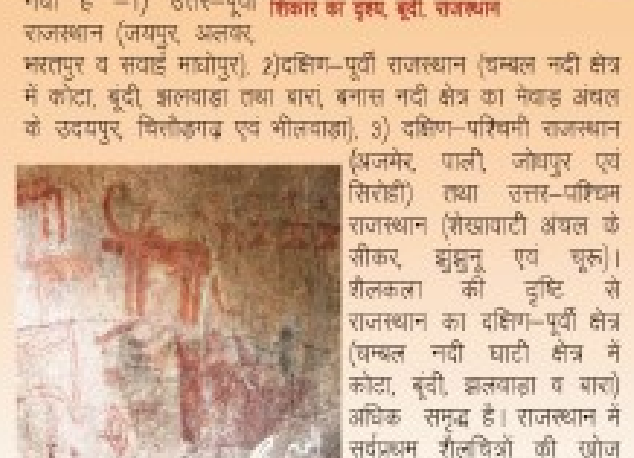 गया है –1) उत्तर–पूर्वी
शिकार का दृश्य, बूंदी, राजस्थान
राजस्थान (जयपुर, अलवर,
भरतपुर व सवाई माधोपुर), 2)दक्षिण–पूर्वी राजस्थान (चम्बल नदी क्षेत्र
में कोटा, बूंदी, झालवाडा तथा बारां, बनास नदी क्षेत्र का मेवाड अंचल
के उदयपुर, चित्तौड़गढ़ एवं भीलवाड़ा), 3) दक्षिण–पश्चिमी राजस्थान
(अजमेर, पाली, जोधपुर एवं
सिरोही) तथा उत्तर–पश्चिम
राजस्थान (शेखावाटी अंचल के
सीकर, झुंझुनू एवं चूरू)।
शैलकला की दृष्टि से
राजस्थान का दक्षिण–पूर्वी क्षेत्र
(चम्बल नदी घाटी क्षेत्र में
कोटा, बूंदी, झालवाडा व बारां)
अधिक समृद्ध है। राजस्थान में
सर्वप्रथम शैलचित्रों की खोज